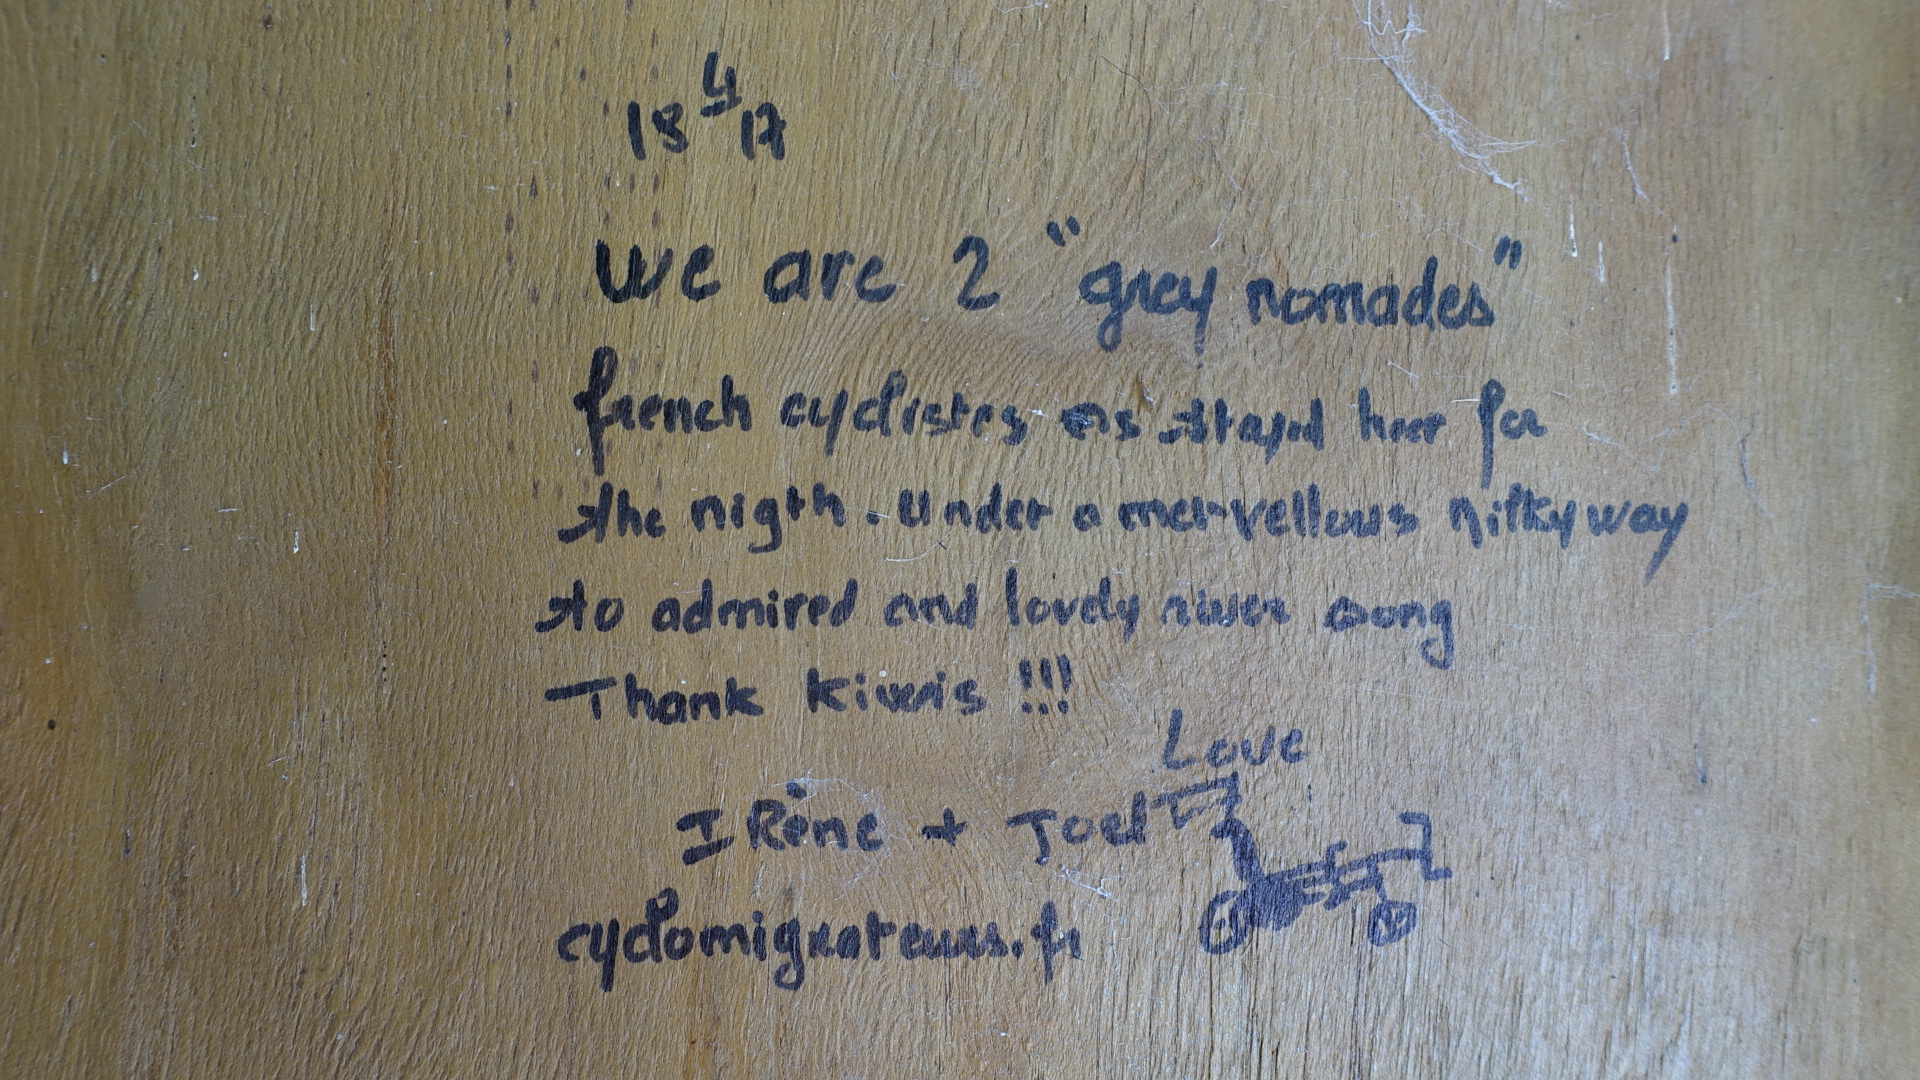 18 4 17
We are 2 "grey nomades"
french cyclistes stayed heer for
the nigth. Under a mervellous milkyway
to admired and lovely river song
Thank Kiwis !!!
Love
IRène + Joel
cyclomigrateurs.fr